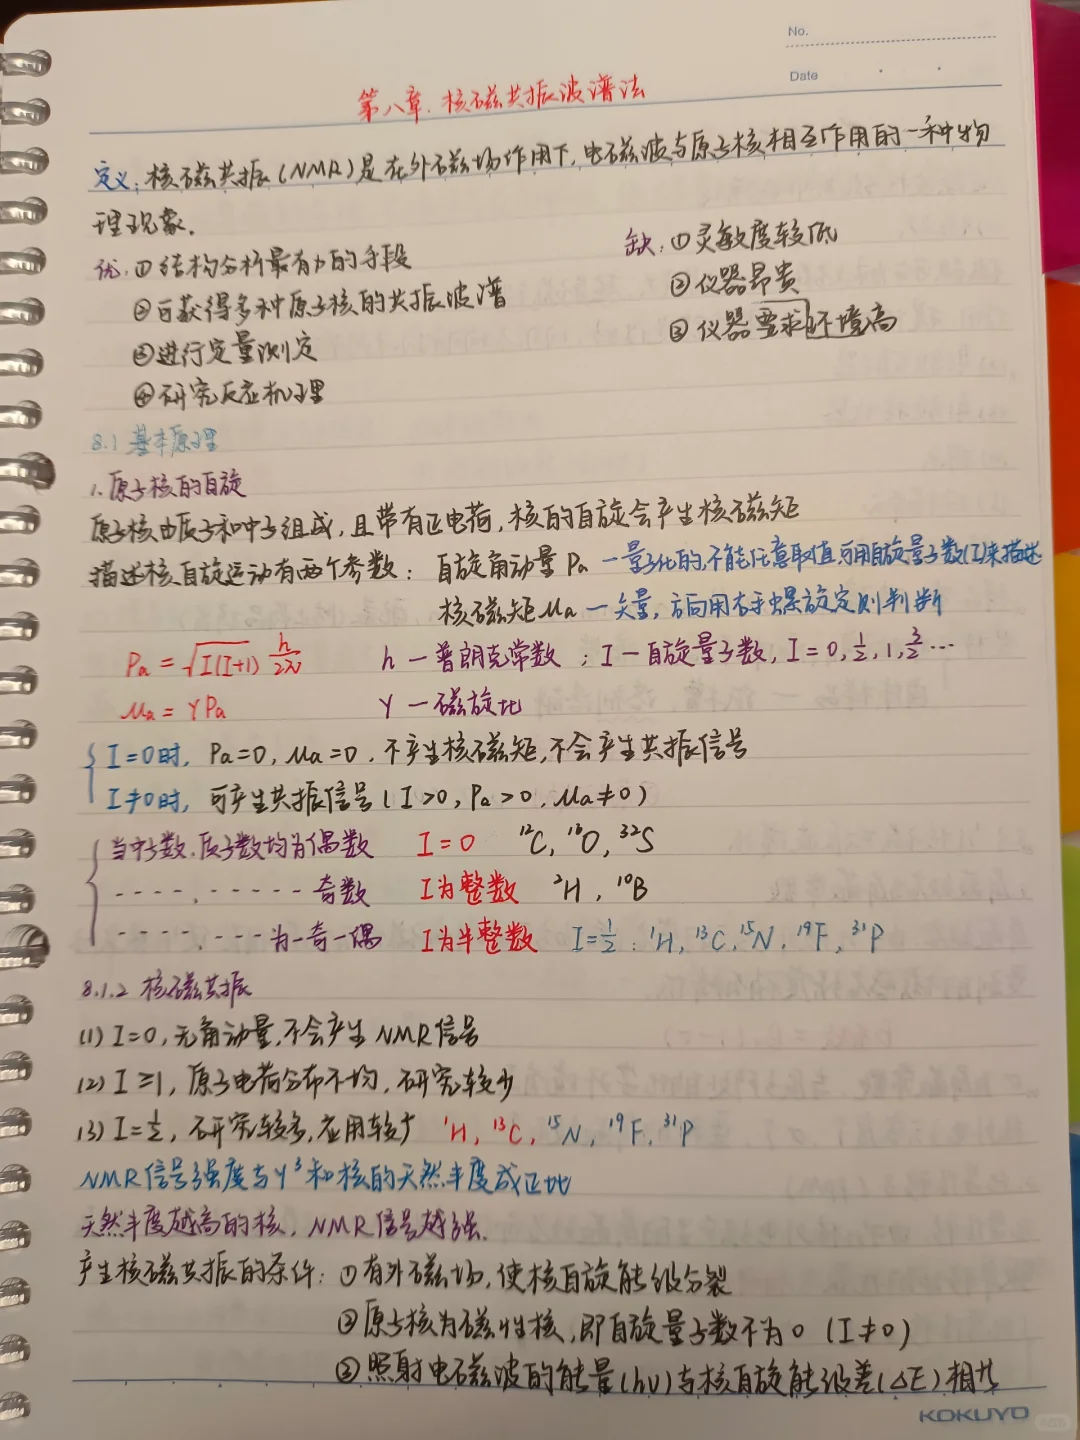 No.
Date
第八章.核磁共振波谱法
定义:核磁共振(NMR)是在外磁场作用下,电磁波与原子核相互作用的一种物
理现象.
优:①结构分析最有力的手段
②可获得多种原子核的共振波谱
③进行定量测定
④研究反应机理
缺:①灵敏度较低
②仪器昂贵
③仪器要求环境高
8.1 基本原理
1.原子核的自旋
原子核由质子和中子组成,且带有正电荷,核的自旋会产生核磁矩
描述核自旋运动有两个参数:自旋角动量Pa—量子化的,不能任意取值,可用自旋量子数(I)来描述
核磁矩μa—矢量,方向用右手螺旋定则判断
Pa=√I(I+1) h/2π h—普朗克常数;I—自旋量子数,I=0,1/2,1,3/2…
μa=γPa γ—磁旋比
I=0时, Pa=0,μa=0.不产生核磁矩,不会产生共振信号
I≠0时,可产生共振信号(I>0,Pa>0,μa≠0)
当中子数.质子数均为偶数 I=0 ¹²C,¹⁶O,³²S
----.-----奇数 I为整数 ²H,¹⁰B
----.---为一奇一偶 I为半整数 I=1/2:¹H,¹³C,¹⁵N,¹⁹F,³¹P
8.1.2 核磁共振
(1) I=0,无角动量,不会产生NMR信号
(2) I≥1,原子电荷分布不均,研究较少
(3) I=1/2,研究较多,应用较广 ¹H,¹³C,¹⁵N,¹⁹F,³¹P
NMR信号强度与γ³和核的天然丰度成正比
天然丰度越高的核,NMR信号越强.
产生核磁共振的条件:①有外磁场,使核自旋能级分裂
②原子核为磁性核,即自旋量子数不为0(I≠0)
③照射电磁波的能量(hν)与核自旋能级差(ΔE)相等
KOKUYO